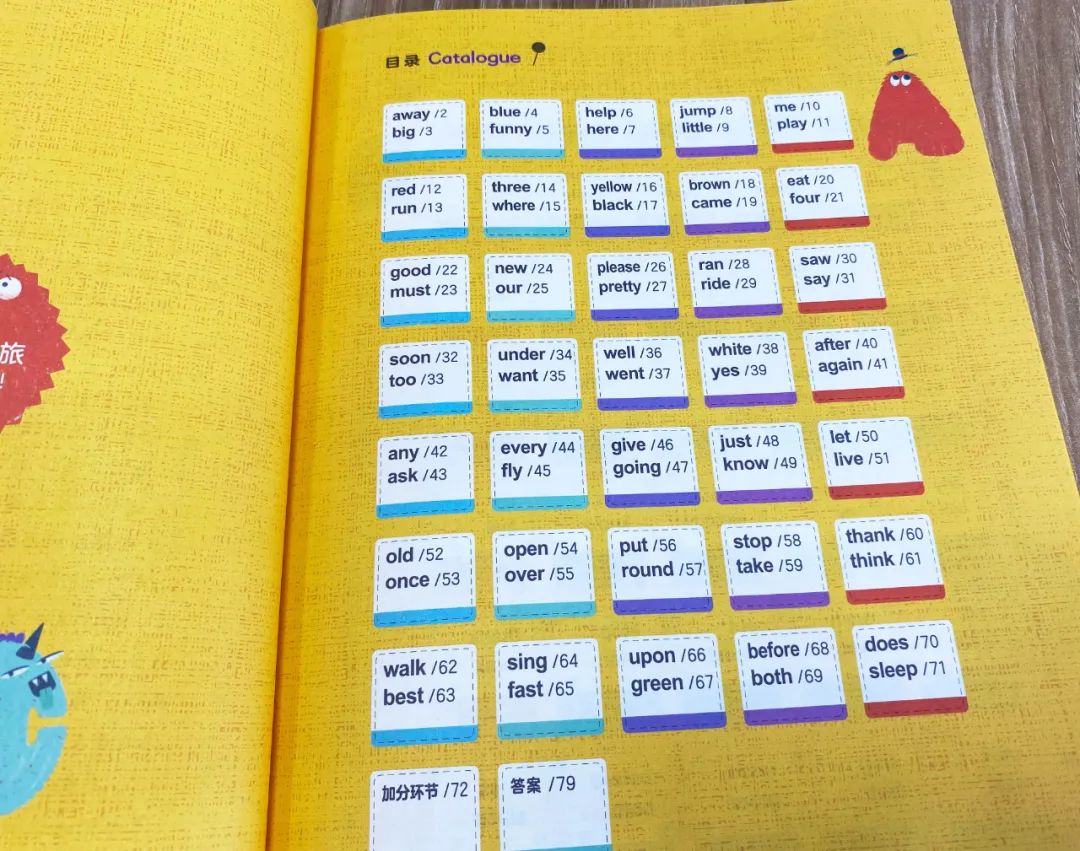 目录 Catalogue
away /2
big /3
blue /4
funny /5
help /6
here /7
jump /8
little /9
me /10
play /11
red /12
run /13
three /14
where /15
yellow /16
black /17
brown /18
came /19
eat /20
four /21
good /22
must /23
new /24
our /25
please /26
pretty /27
ran /28
ride /29
saw /30
say /31
soon /32
too /33
under /34
want /35
well /36
went /37
white /38
yes /39
after /40
again /41
any /42
ask /43
every /44
fly /45
give /46
going /47
just /48
know /49
let /50
live /51
old /52
once /53
open /54
over /55
put /56
round /57
stop /58
take /59
thank /60
think /61
walk /62
best /63
sing /64
fast /65
upon /66
green /67
before /68
both /69
does /70
sleep /71
加分环节 /72
答案 /79
旅
!